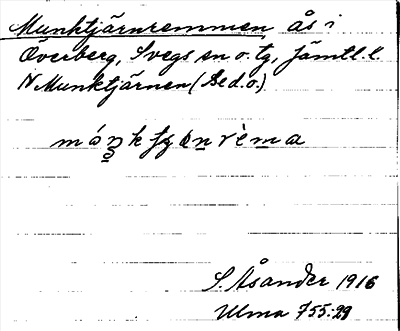 Munktjärnremmen ås i
Överberg, Svegs sn o. tg, Jämtl. l.
N Munktjärnen (Se d. o.)
S. Åsander 1916
Ulma 755:29